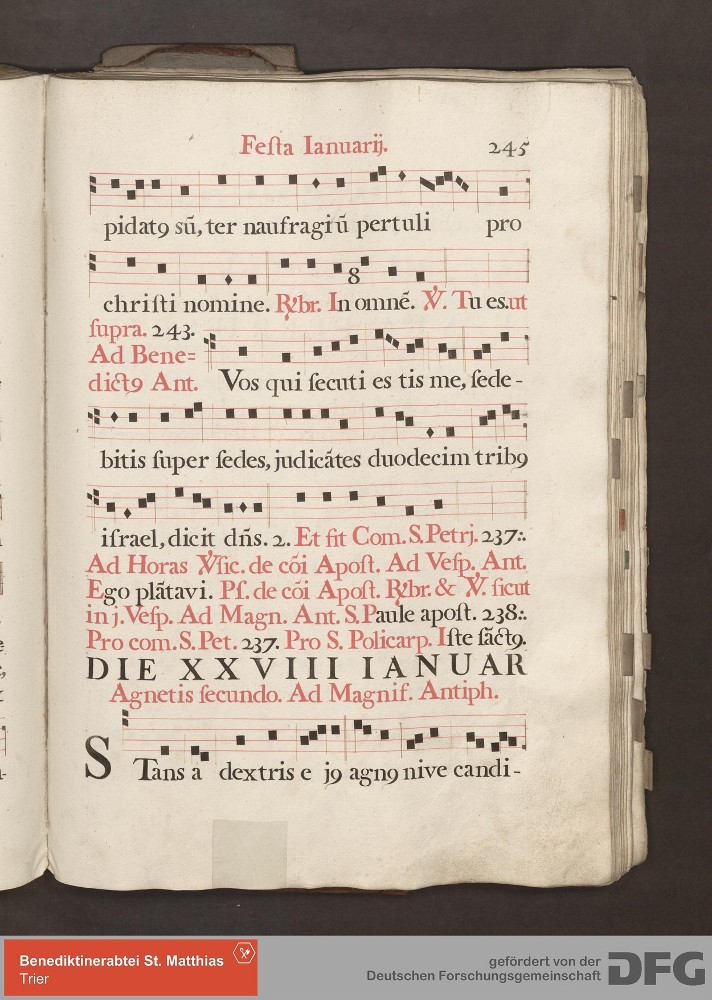 Feſta Ianuarij. 245
pidatꝯ sũ, ter naufragiũ pertuli pro
8
chriſti nomine. R̷br. In omnẽ. V̷. Tu es. ut
ſupra. 243.
Ad Bene=
dictꝯ Ant. Vos qui ſecuti es tis me, ſede-
bitis ſuper ſedes, judicãtes duodecim tribꝯ
iſrael, dicit dñs. 2. Et fit Com. S. Petrj. 237:.
Ad Horas V̷ſic. de cõi Apoſt. Ad Veſp. Ant.
Ego plãtavi. Pſ. de cõi Apoſt. R̷br. & V̷. ſicut
in j. Veſp. Ad Magn. Ant. S. Paule apoſt. 238:.
Pro com. S. Pet. 237. Pro S. Policarp. Iſte ſãctꝯ.
DIE XXVIII IANUAR
Agnetis ſecundo. Ad Magnif. Antiph.
STans a dextris e jꝯ agnꝯ nive candi-
Benediktinerabtei St. Matthias
Trier
gefördert von der
Deutschen Forschungsgemeinschaft
DFG